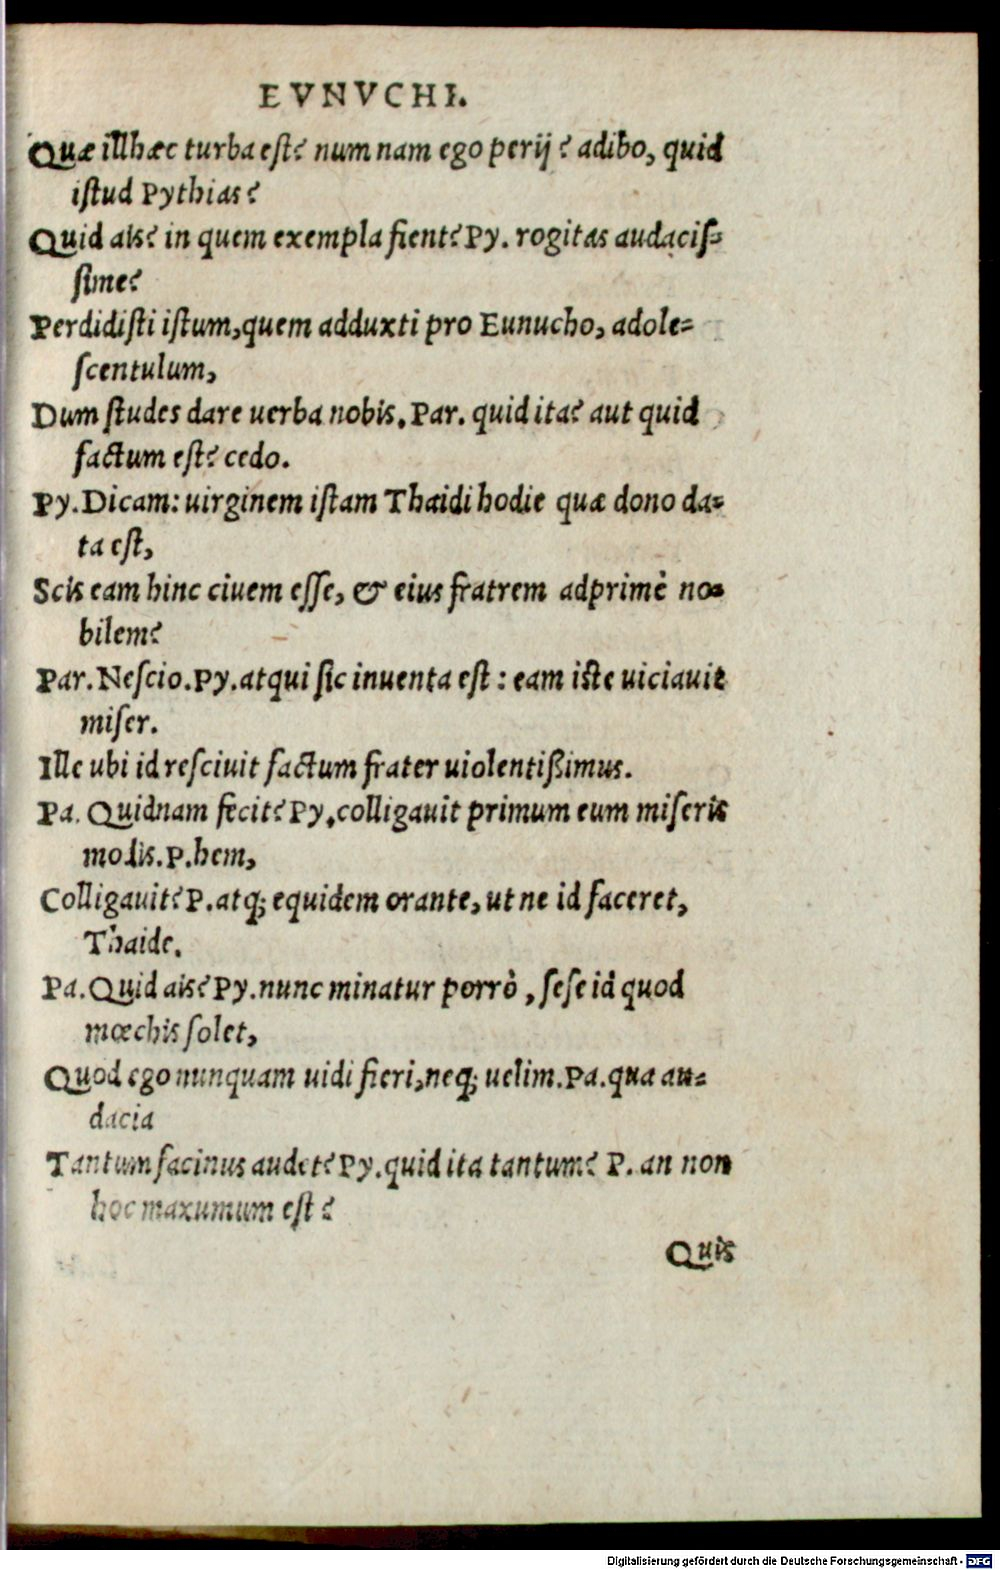 EVNVCHI.
Quæ illhæc turba est? num nam ego perij? adibo, quid
istud Pythias?
Quid ais? in quem exempla fient? Py. rogitas audacis=
sime?
Perdidisti istum, quem adduxti pro Eunucho, adole=
scentulum,
Dum studes dare uerba nobis. Par. quid ita? aut quid
factum est? cedo.
Py. Dicam: uirginem istam Thaidi hodie quæ dono da=
ta est,
Scis eam hinc ciuem esse, & eius fratrem adprimè no=
bilem?
Par. Nescio. Py. atqui sic inuenta est: eam iste uiciauit
miser.
Ille ubi id resciuit factum frater uiolentißimus.
Pa. Quidnam fecit? Py. colligauit primum eum miseris
modis. P. hem,
Colligauit? P. atq; equidem orante, ut ne id faceret,
Thaide.
Pa. Quid ais? Py. nunc minatur porrò, sese id quod
mœchis solet,
Quod ego nunquam uidi fieri, neq; uelim. Pa. qua au=
dacia
Tantum facinus audet? Py. quid ita tantum? P. an non
hoc maxumum est?
Quis
Digitalisierung gefördert durch die Deutsche Forschungsgemeinschaft - DFG